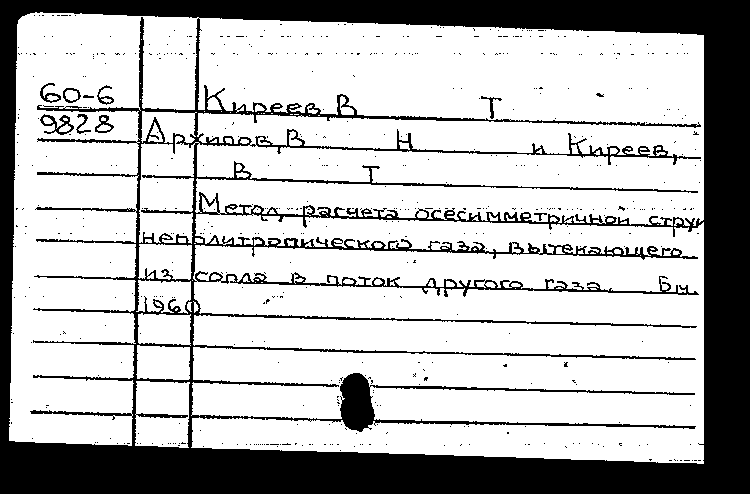 60-6 Киреев, В Т
9828 Архипов, В Н и Киреев,
В Т
Метод расчета осесимметричной струи
неполитропического газа, вытекающего
из сопла в поток другого газа. Бм.
1960